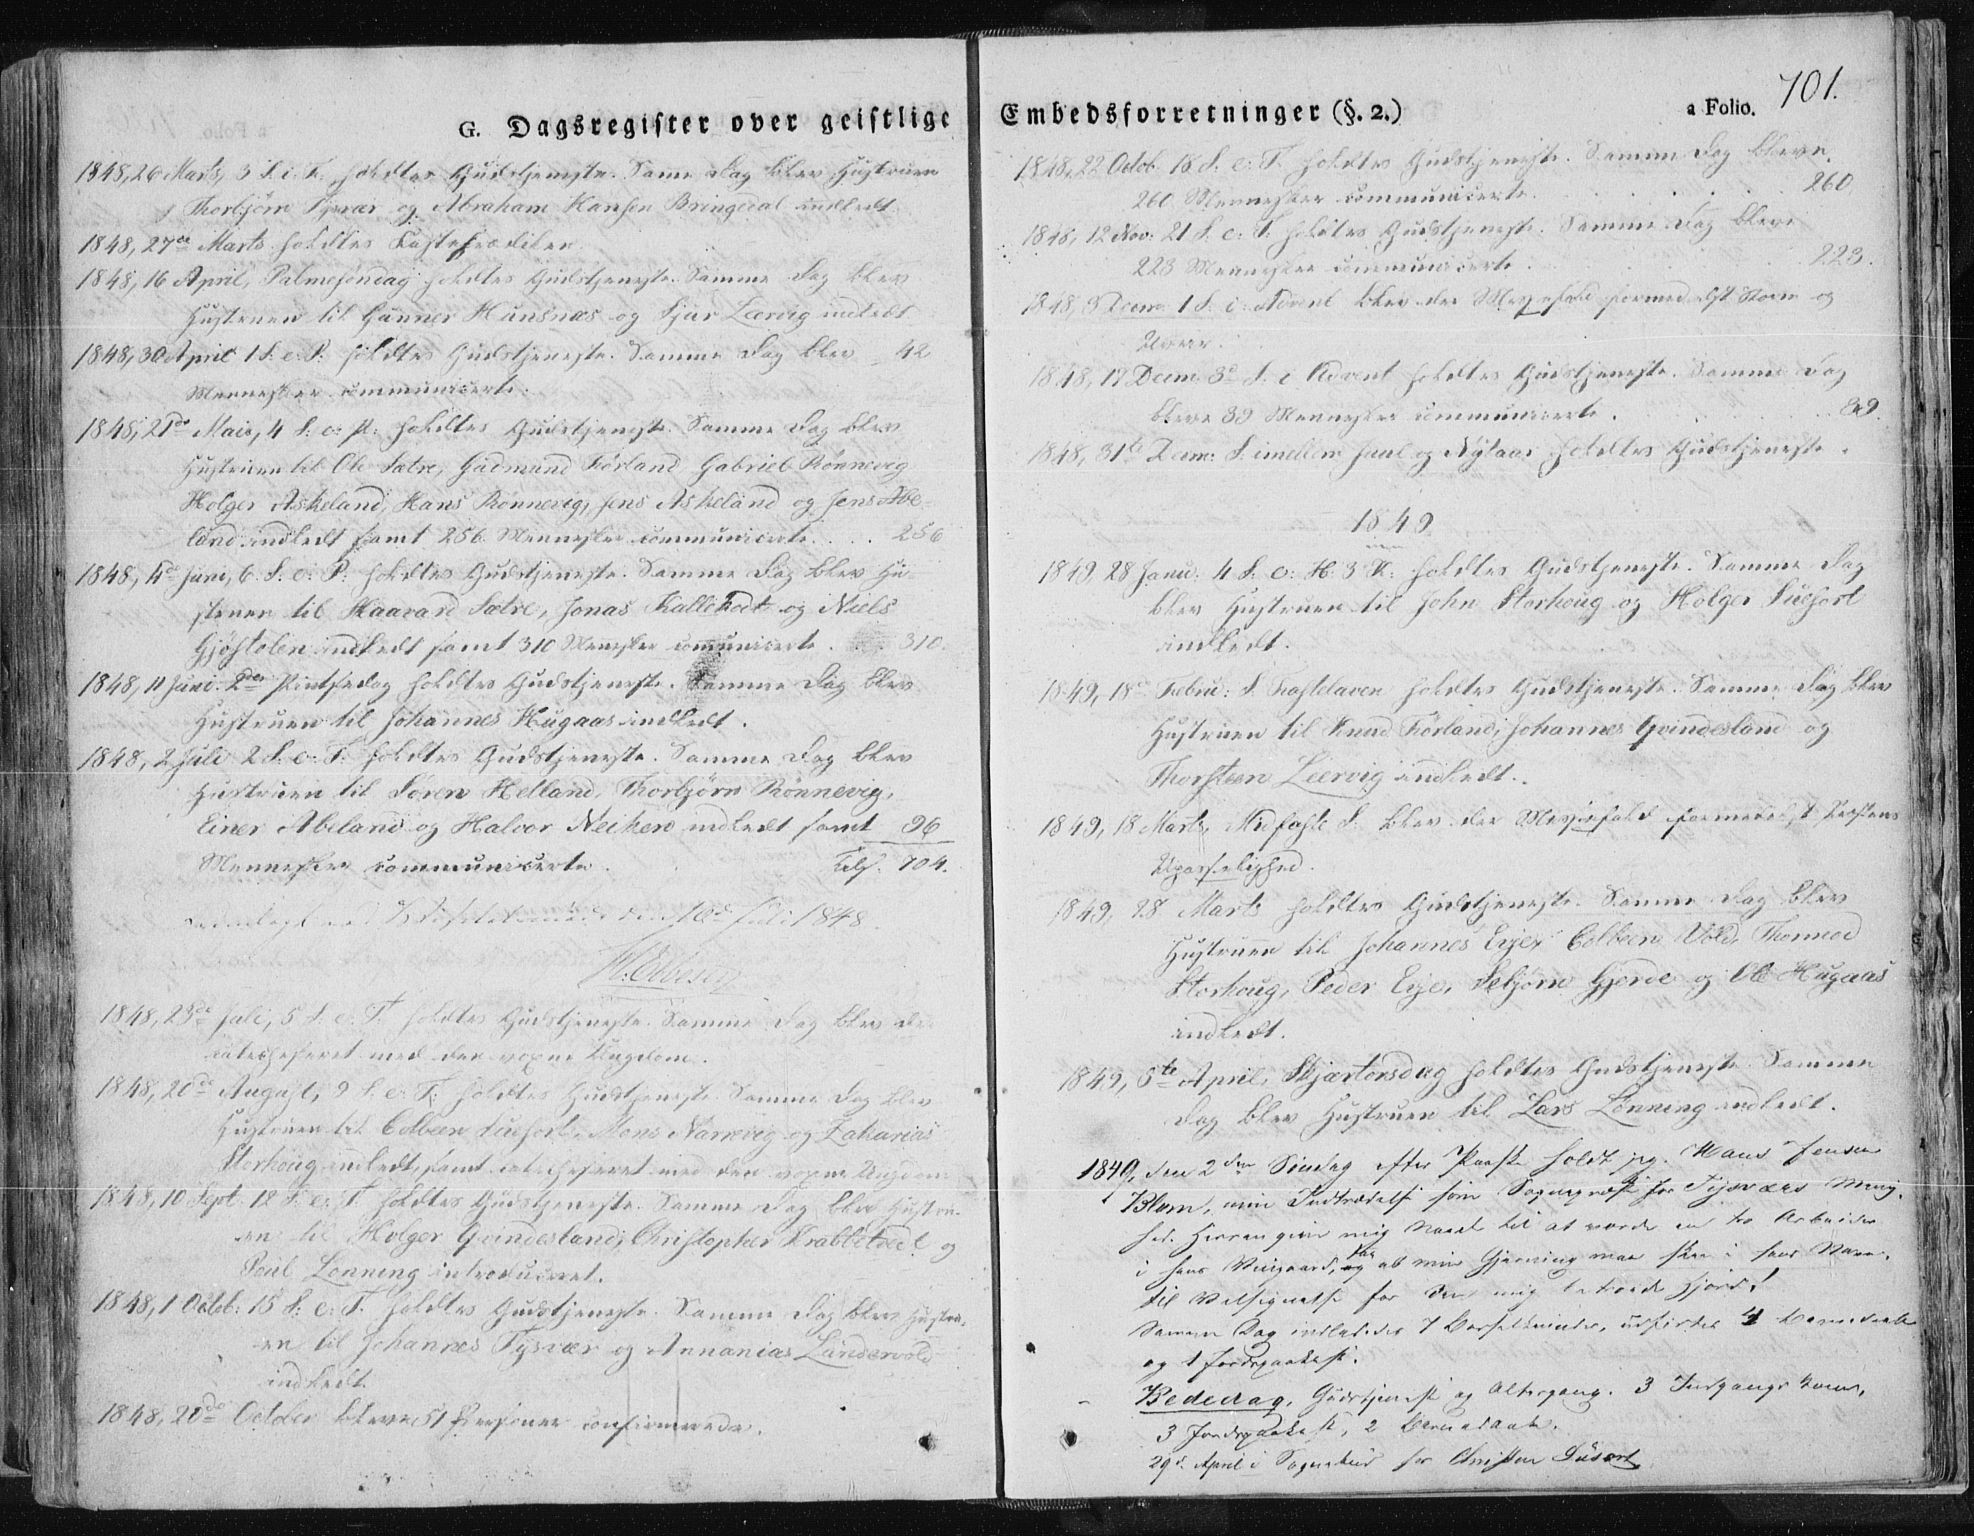 G. Dagsregister over geistlige
1848, 26 Marts, 3 S. i F. holdtes Gudstjeneste. Same Dag blev Hustruen
Thorbjørn Tysvær og Abraham Hansen Bringedal indledt
1848, 27de Marts holdtes Fasteprædiken.
1848, 16 April, Palmesøndag holdtes Gudstjeneste. Samme Dag blev
Hustruen til Gunner Hunsnæs og Sjur Leervig indledt
1848, 30 April 1 S. e. P. holdtes Gudstjeneste. Samme Dag blev 42
Mennesker communicerte.
1848, 21de Maie, 4 S. e. P. holdtes Gudstjeneste. Samme Dag blev
Hustruen til Ole Sætre, Gudmund Førland, Gabriel Rønnevig
Holger Askeland, Hans Rønnevig, Jens Askeland og Jens Abe-
land indledt samt 256 Mennesker communicerte. . . . 256
1848, 4de Juni, 6 S. e. P. holdtes Gudstjeneste. Samme Dag blev Hu-
struen til Haavard Sætre, Jonas Kallekodt og Niels
Gjøstolen indledt samt 310 Mennesker communicerte. 310.
1848, 11 Juni. 2den Pintsedag holdtes Gudstjeneste. Samme Dag blev
Hustruen til Johannes Hugaas indledt.
1848, 2 Juli 2 S. e. T. holdtes Gudstjeneste. Samme Dag blev
Hustruen til Søren Helland, Thorbjørn Rønnevig,
Einer Abeland og Halvor Neiken indledt samt 96
Mennesker communicerte. Tils. 704.
Juli 1848.
1848, 23de Juli, 5 S. e. T. holdtes Gudstjeneste. Samme Dag blev der
catecheseret med den voxne Ungdom.
1848, 20de August, 9 S. e. T. holdtes Gudstjeneste. Samme Dag blev
Hustruen til Colbeen Suesort, Mons Narrevig og Zakarias
Storhoug indledt, samt catecheseret med den voxne Ungdom
1848, 10 Sept. 12 S. e. T. holdtes Gudstjeneste. Samme Dag blev Hustru-
en til Holger Qvindesland, Christopher Krabbetvedt og
Poul Lønning introduceret.
1848, 1 Octob: 15 S. e. T. holdtes Gudstjeneste. Samme Dag blev Hustru-
en til Johannes Tysvær og Annanias Landervold
indledt.
1848, 20de October bleve 51 Personer confirmerede.
Embedsforretninger (§. 2.)
a Folio. 701.
1848, 22 Octob. 18 S. e. T. holdtes Gudstjeneste. Samme Dag bleve
260 Mennesker communicerte. . . . 260.
1848, 12 Nov: 21 S. e. T. holdtes Gudstjeneste. Samme Dag bleve
223 Mennesker communicerte . . . 223.
1848, 3 Decem 1 S. i Advent blev der Messefald formedelst Storm og
Uveir.
1848, 17 Decem. 3de S. i Advent holdtes Gudstjeneste. Samme Dag
bleve 39 Mennesker communicerte.
1848, 31te Decem: S. imellem Juul og Nytaar holdtes Gudstjeneste.
1849
1849, 28 Janu: 4 S. e. H. 3 K. holdtes Gudstjeneste. Samme Dag
blev Hustruen til John Storhoug og Holger Suesort
indledt.
1849, 18de Febru: S. Fastelaven holdtes Gudstjeneste. Samme Dag blev
Hustruen til Knud Førland, Johannes Qvindesland og
Thorsteen Leervig indledt.
1849, 18 Marts, Midfaste S. blev der Messefald formedelst Præstens
Upasselighed.
1849, 28 Marts holdtes Gudstjeneste. Samme Dag blev
Hustruen til Johannes Erje, Colbeen Vold, Thormod
Storhoug, Peder Erje, Sebjørn Gjerde og Ole Hugaas
indledt.
1849, 5te April, Skjærtorsdag holdtes Gudstjeneste. Samme
Dag blev Hustruen til Lars Lønning indledt.
1849, den 2den Søndag efter Paaske holdt jeg, Hans Jensen
Blom, min Indtrædelse som Sognepræst for Tysvær Menig-
hed. Herren give mig Naade til at vorde en tro Arbeider
i hans Viingaard, og at min Gjerning maa skee i hans Navn,
til Velsignelse for den mig betroede Hjord!
Samme Dag indlededes 7 Barselkvinder, udførtes 4 Barnedaab
og 1 Jordspaakast.
Bededag, Gudstjeneste og Altergang. 3 Indgangskoner,
3 Jordspaakast, 2 Barnedaab.
29de April i Sognebud for Christen Susort.